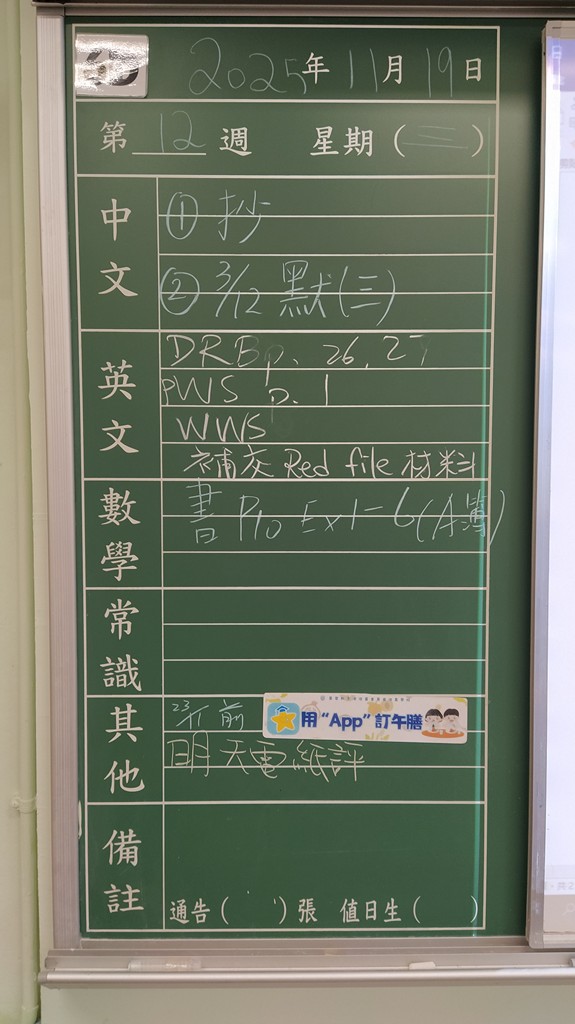 2025年11月19日
第12週 星期(三)
中文
① 抄
② 3/12 默(三)
英文
DRB p. 26, 27
PWS p. 1
WWS
補交 Red file 材料
數學
書 P10 Ex1-6(A簿)
常識
其他
23/11 前 用“App”訂午膳
明天電紙評
備註
通告( )張 值日生( )